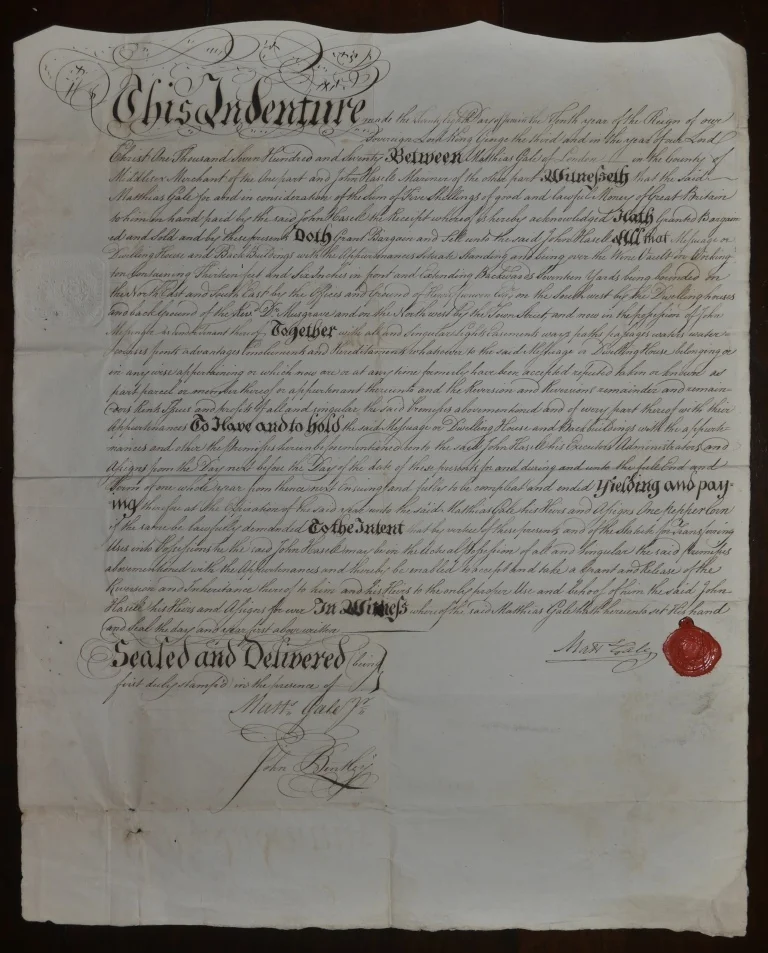 This Indenture made the Day of in the Tenth year of the Reign of our
Sovereign Lord King George the third and in the year of our Lord
Christ One Thousand Seven Hundred and Seventy Between Matthias Gale of London in the County of
Middlesex Merchant of the One part and John Hasell Mariner of the other part Witnesseth that the said
Matthias Gale for and in consideration of the Sum of Five Shillings of good and lawful Money of Great Britain
to him in hand paid by the said John Hasell the Receipt whereof is hereby acknowledged Hath Granted Bargain
ed and Sold and by these presents Doth Grant Bargain and Sell unto the said John Hasell All that Messuage or
Dwelling House and Back Buildings with the Appurtenances situate standing and being over the Wine Vaults in Working
ton Containing Thirteen feet and Six Inches in front and Extending Backwards Seventeen Yards being bounded on
the North East and South East by the Offices and Ground of Henry Esqr. on the South west by the Dwellinghouses
and back Ground of the Revd. Dr. Musgrave and on the North West by the Town Street, and now in the possession of John
as Tenant thereof Together with all and Singular Lights Easements ways paths passages waters water
courses profits advantages Emoluments and Hereditaments whatsoever to the said Messuage or Dwelling House belonging or
in any wise appertaining or which now are or at any time formerly have been accepted reputed taken or known as
part parcel or member thereof or appurtenant thereunto and the Reversion and Reversions remainder and remain-
ders Rents Issues and profits of all and singular the said Premises abovementioned and of every part thereof with their
Appurtenances To Have and to hold the said Messuage or Dwelling House and Back buildings with the appurte-
nances and other the Premisses herein beforementioned unto the said John Hasell his Executors Administrators and
Assigns from the Day next before the Day of the date of these presents for and during and unto the full End and
Term of one whole year from thence next Ensuing and fully to be compleat and ended Yielding and pay-
ing therefore at the Expiration of the said year unto the said Matthias Gale his Heirs and Assigns One Pepper Corn
if the same be lawfully demanded To the Intent that by virtue of these presents and of the Statute for Transfering
Uses into Possession he the said John Hasell may be in the Actual Possession of all and singular the said Premisses
abovementioned with the Appurtenances and thereby be enabled to accept and take a Grant and Release of the
Reversion and Inheritance thereof to him and his Heirs to the only proper Use and Behoof of him the said John
Hasell his Heirs and Assigns for ever In Witness whereof the said Matthias Gale Hath hereunto set his hand
and seal the day and year first above written
Matts. Gale
Sealed and Delivered being
first duly stamped in the presence of
Matts. Gale Jr.
John